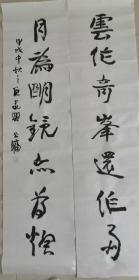 雲作奇峯還作雨
月為明鏡亦為燈
甲戌中秋之